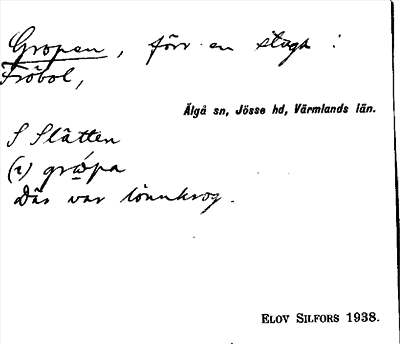 Gropen, förr en stuga i
Fröbol,
Älgå sn, Jösse hd, Värmlands län.
S Slätten
(2) grópa
Där var lönnkrog.
ELOV SILFORS 1938.